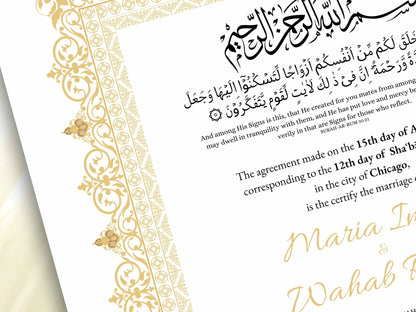 بسم الله الرحمن الرحيم
خَلَقَ لَكُم مِّنْ أَنفُسِكُمْ أَزْوَاجًا لِّتَسْكُنُوا إِلَيْهَا وَجَعَلَ
وَرَحْمَةً إِنَّ فِي ذَٰلِكَ لَآيَاتٍ لِّقَوْمٍ يَتَفَكَّرُونَ
And among His Signs is this, that He created for you mates from among
may dwell in tranquility with them, and He has put love and mercy be
verily in that are Signs for those who reflect.
SURAH-AR-RUM 30:21
The agreement made on the 15th day of A
corresponding to the 12th day of Sha'b
in the city of Chicago,
is the certify the marriage o
Maria I
&
Wahab